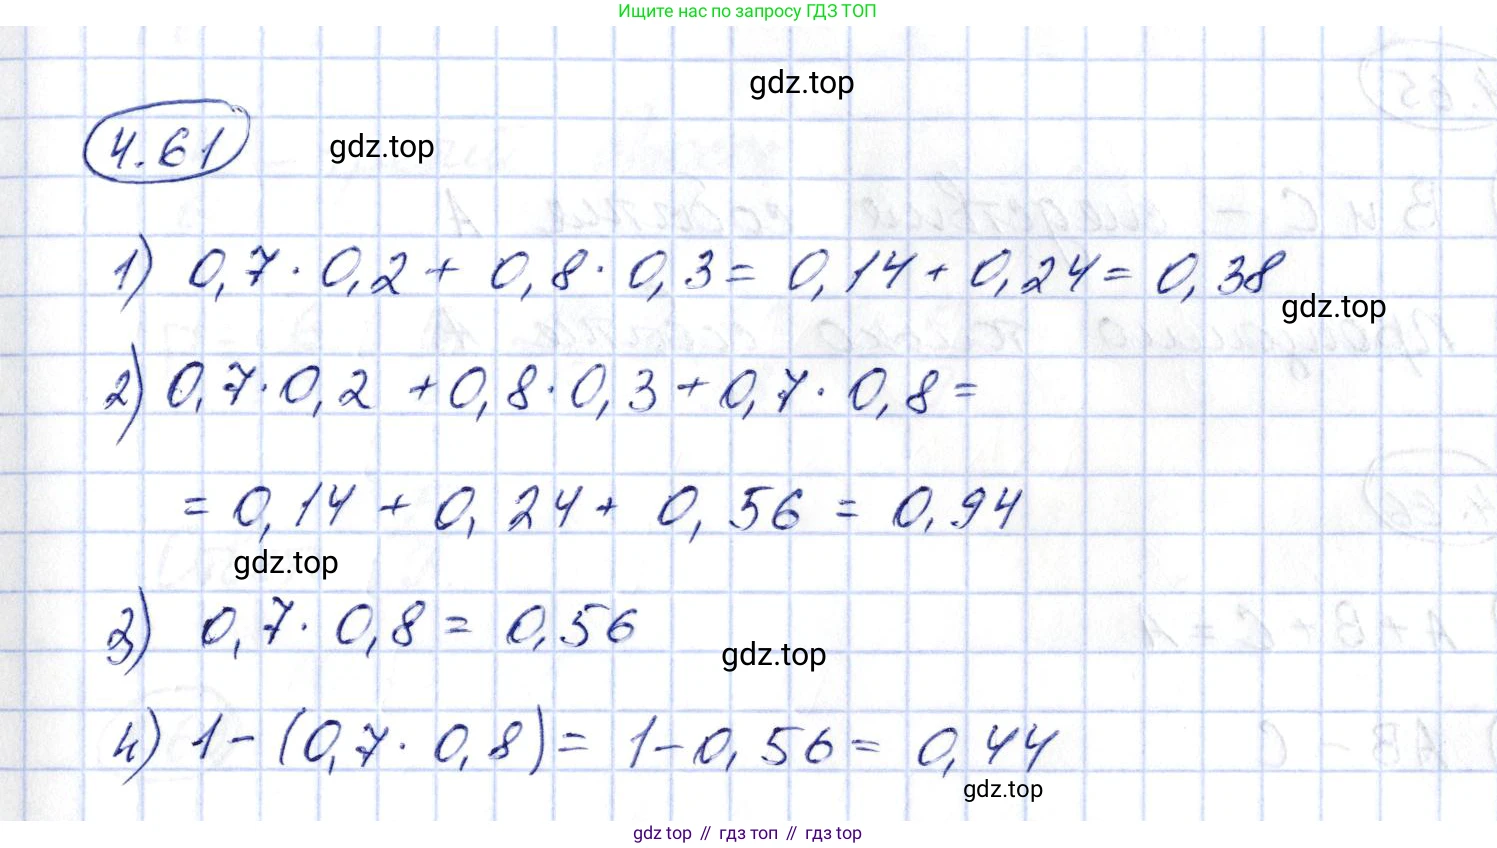 Ищите нас по запросу ГДЗ ТОП
gdz.top
4.61
gdz.top
1) 0,7 · 0,2 + 0,8 · 0,3 = 0,14 + 0,24 = 0,38
gdz.top
2) 0,7 · 0,2 + 0,8 · 0,3 + 0,7 · 0,8 =
= 0,14 + 0,24 + 0,56 = 0,94
gdz.top
3) 0,7 · 0,8 = 0,56
gdz.top
4) 1 - (0,7 · 0,8) = 1 - 0,56 = 0,44
gdz.top
gdz top // гдз топ // гдз top